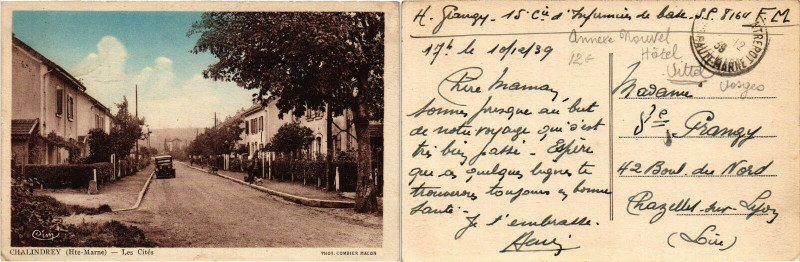 CHALINDREY (Hte-Marne) — Les Cités
Cim
PHOT. COMBIER MACON
H. Prangy - 15e Cie d'Infirmiers de base - S.P. 8164 F M
Annexe Nouvel
Hôtel
Vittel
Vosges
17h le 10/12/39
Chère Maman,
Sommes presque au but
de notre voyage qui s'est
très bien passé. Espère
que ces quelques lignes te
trouveront toujours en bonne
santé.
Je t'embrasse.
Henri
Madame
Prangy
42 Boul. du Nord
Chazelles-sur-Lyon
(Loire)